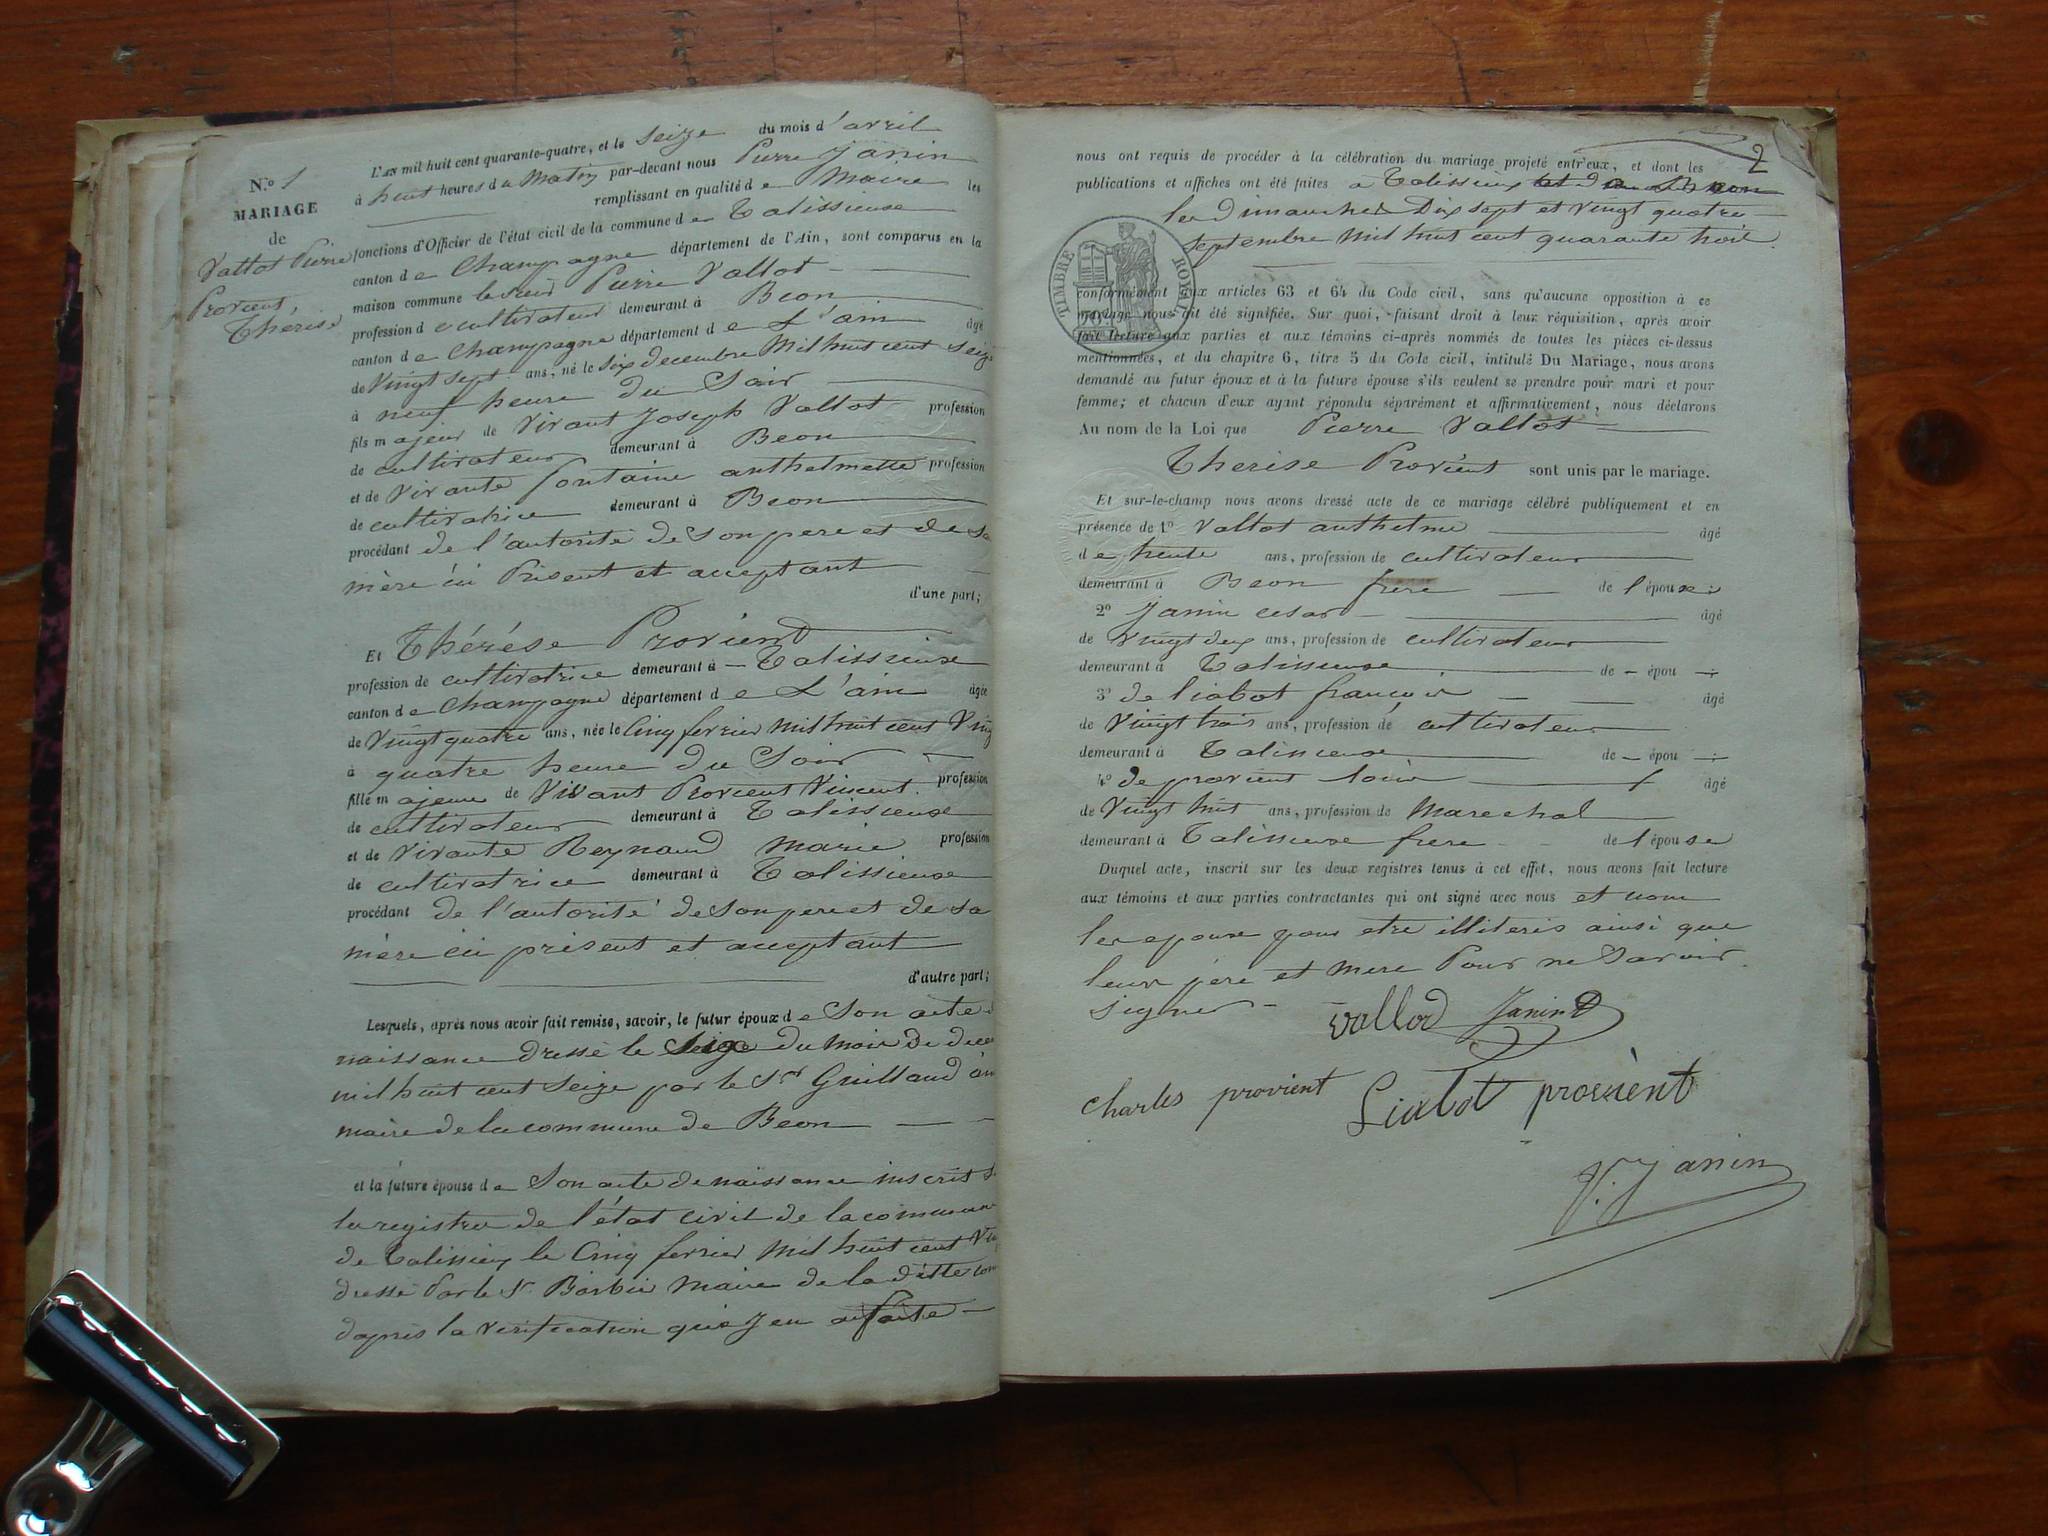 N.º 1
MARIAGE
de
Vallot Pierre
Provient,
Thérèse
L'an mil huit cent quarante-quatre, et le seize du mois d'avril
à huit heures du Matin par-devant nous Pierre Janin
remplissant en qualité de Maire les
fonctions d'Officier de l'état civil de la commune de Talissieux
canton de Champagne département de l'Ain, sont comparus en la
maison commune le sieur Pierre Vallot
profession de cultivateur demeurant à Beon
canton de Champagne département de L'ain âgé
de Vingt sept ans, né le six decembre Mil huit cent seize
à neuf heure du Soir
fils majeur de Vivant Joseph Vallot profession
de cultivateur demeurant à Beon
et de Vivante fontaine anthelmette profession
de cultivatrice demeurant à Beon
procédant de l'autorité de son pere et de sa
mère ici Présent et acceptant
d'une part;
Et Thérése Provient
profession de cultivatrice demeurant à Talissieux
canton de Champagne département de L'ain âgée
de Vingt quatre ans, née le Cinq fevrier mil huit cent Ving
à quatre heure du Soir
fille majeure de Vivant Provient Vincent. profession
de cultivateur demeurant à Talissieux
et de vivante Reynaud Marie profession
de cultivatrice demeurant à Talissieux
procédant de l'autorité de son pere et de sa
mère ici présent et acceptant
d'autre part;
Lesquels, après nous avoir fait remise, savoir, le futur époux de Son acte d
naissance dressé le Seize du mois de decem
mil huit cent Seize par le Sr Guilland
maire de la commune de Beon
et la future épouse de Son acte de naissance inscrit s
les registres de l'état civil de la commune
de Talissieux le Cinq fevrier mil huit cent Vin
dressé Par le Sr Barbier Maire de la ditte com
daprés la verification que J'en ai faite
2
nous ont requis de procéder à la célébration du mariage projeté entr'eux, et dont les
publications et affiches ont été faites à Talissieux et à Beon
les Dimanches Dix sept et Vingt quatre
Septembre Mil huit cent quarante trois.
TIMBRE ROYAL
conformément aux articles 63 et 64 du Code civil, sans qu'aucune opposition à ce
mariage nous ait été signifiée. Sur quoi, faisant droit à leur réquisition, après avoir
fait lecture aux parties et aux témoins ci-après nommés de toutes les pièces ci-dessus
mentionnées, et du chapitre 6, titre 5 du Code civil, intitulé Du Mariage, nous avons
demandé au futur époux et à la future épouse s'ils veulent se prendre pour mari et pour
femme; et chacun d'eux ayant répondu séparément et affirmativement, nous déclarons
Au nom de la Loi que Pierre Vallot
Therése Provient sont unis par le mariage.
Et sur-le-champ nous avons dressé acte de ce mariage célébré publiquement et en
présence de 1º Vallot anthelme âgé
de trente ans, profession de cultivateur
demeurant à Beon frere de l'époux
2º Janin cesar âgé
de Vingt deux ans, profession de cultivateur
demeurant à Talissieux de – épou
3º de lialot françois âgé
de Vingt trois ans, profession de cultivateur
demeurant à Talissieux de – épou
4º de provient louis âgé
de Vingt huit ans, profession de Marechal
demeurant à Talissieux frere de l'épouse
Duquel acte, inscrit sur les deux registres tenus à cet effet, nous avons fait lecture
aux témoins et aux parties contractantes qui ont signé avec nous et non
les epoux pour etre illiteris ainsi que
leur pére et mere Pour ne Savoir
signer
vallod Janin
charles provient Lialot provient
P. Janin